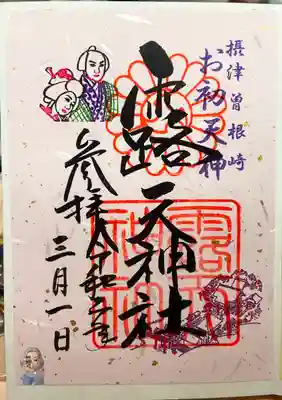 摂津曽根崎
お初天神
露天神社
参拝 令和六年
三月一日